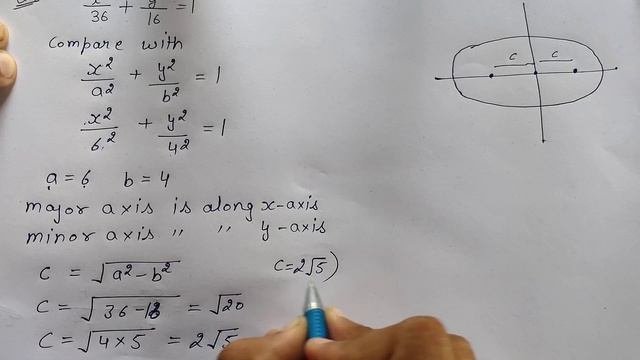 x²/36 + y²/16 = 1
Compare with
x²/a² + y²/b² = 1
x²/6² + y²/4² = 1
a = 6 b = 4
major axis is along x-axis
minor axis " " y-axis
c = √(a² - b²)
c = √(36 - 16) = √20
c = √(4 × 5) = 2√5
c = 2√5)
c c